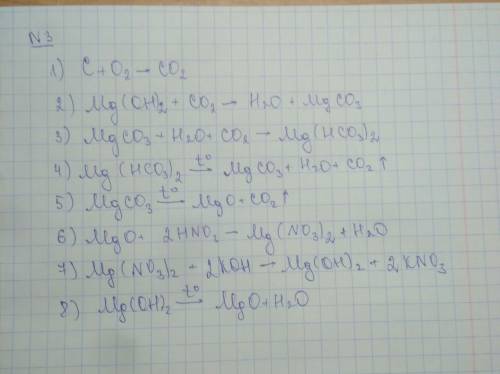 N3
1) C + O₂ → CO₂
2) Mg(OH)₂ + CO₂ → H₂O + MgCO₃
3) MgCO₃ + H₂O + CO₂ → Mg(HCO₃)₂
4) Mg(HCO₃)₂ –t°→ MgCO₃ + H₂O + CO₂↑
5) MgCO₃ –t°→ MgO + CO₂↑
6) MgO + 2HNO₃ → Mg(NO₃)₂ + H₂O
7) Mg(NO₃)₂ + 2KOH → Mg(OH)₂ + 2KNO₃
8) Mg(OH)₂ –t°→ MgO + H₂O